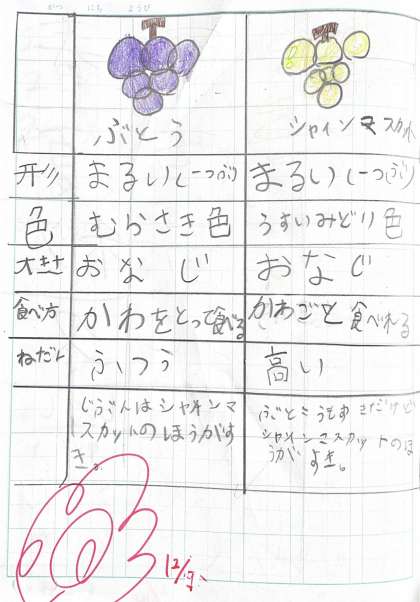 がつ にち ようび
ぶどう シャインマスカット
形 まるい(一つぶ) まるい(一つぶ)
色 むらさき色 うすいみどり色
大きさ おなじ おなじ
食べ方 かわをとって食べる かわごと食べれる
ねだん ふつう 高い
じぶんはシャインマ
スカットのほうがす
き。
ぶどうもすきだけど
シャインマスカットのほ
うがすき。
12/19